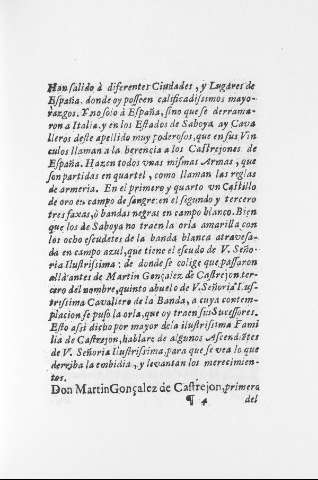 Han salido à diferentes Ciudades, y Lugares de
España, donde oy posseen calificadissimos mayo-
razgos. Y no solo à España, sino que se derrama-
ron a Italia, y en los Estados de Saboya ay Cava
lleros deste apellido muy poderosos, que en sus Vin
culos llaman a la herencia a los Castrejones de
España. Hazen todos vnas mismas Armas, que
son partidas en quartel, como llaman las reglas
de armeria. En el primero y quarto vn Castillo
de oro en campo de sangre: en el segundo y tercero
tres faxas, ò bandas negras en campo blanco. Bien
que los de Saboya no traen la orla amarilla con
los ocho escudetes de la banda blanca atravesa-
da en campo azul, que tiene el escudo de V. Seño-
ria Ilustrissima: de donde se colige que passaron
allà antes de Martin Gonçalez de Castrejon, ter-
cero del nombre, quinto abuelo de V. Señoria Ilus-
trissima Cavallero de la Banda, a cuya contem-
placion se puso la orla, que oy traen sus Sucessores.
Esto assi dicho por mayor de la ilustrissima Fami
lia de Castrejon, hablarè de algunos Ascendẽtes
de V. Señoria Ilustrissima, para que se vea lo que
derriba la embidia, y levantan los merecimien-
tos.
Don Martin Gonçalez de Castrejon, primero
¶ 4 del